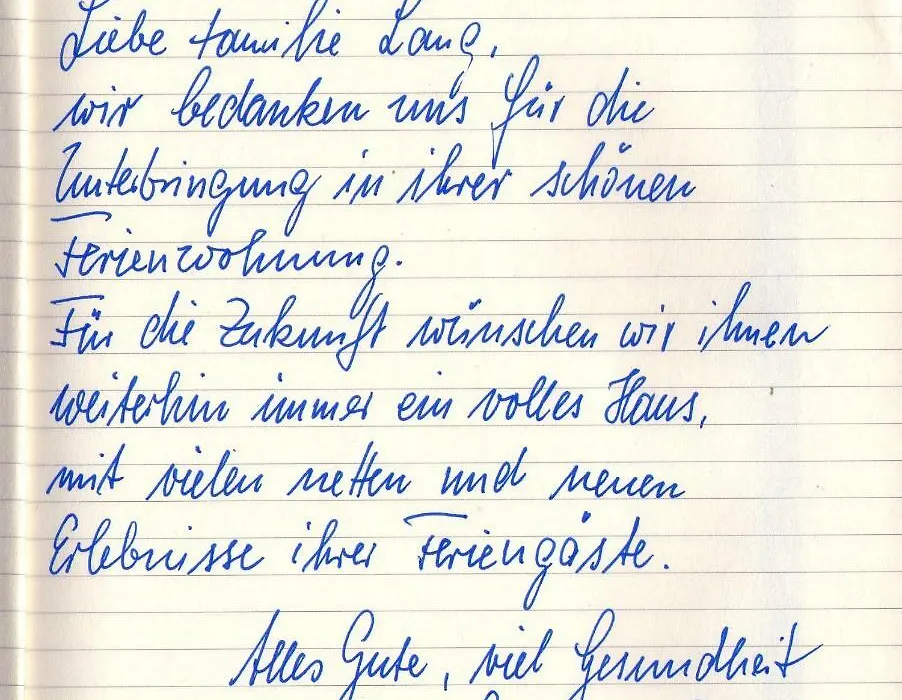 Liebe Familie Lang,
wir bedanken uns für die
Unterbringung in ihrer schönen
Ferienwohnung.
Für die Zukunft wünschen wir ihnen
weiterhin immer ein volles Haus,
mit vielen netten und neuen
Erlebnisse ihrer Feriengäste.
Alles Gute, viel Gesundheit